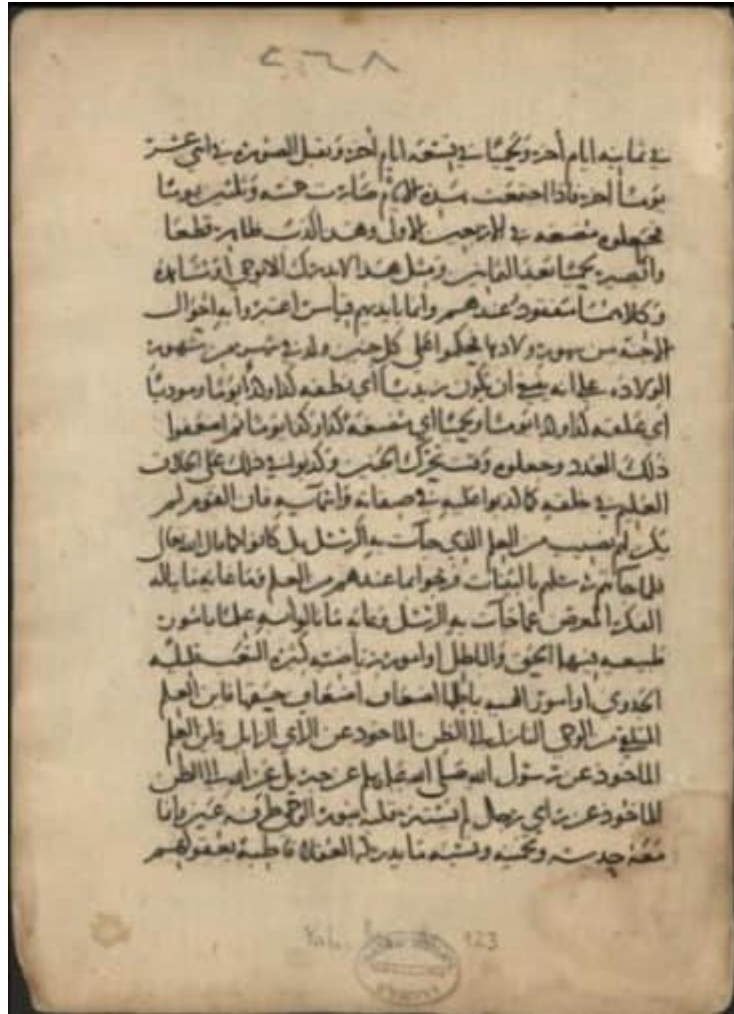 ٢٦٨
في ثمانيه ايام أخر ولحما في تسعه ايام أخر وتقبل الصوره في اثني عشر
يوما أخر فاذا اجتمعت هذه الايام صارت خمسه وثلثين يوما
فيجعلون مضغه في الاربعين الاول وهذا كذب ظاهر قطعا
وانما تصير لحما بعد الثمانين ومثل هذا لا يدرك الا بوحي او مشاهده
وكلاهما مفقود عندهم وانما بايديهم قياس اعتبروا به احوال
الاجنه من شهور ولادها فحكموا على كل جنين ولد في شهر من شهور
الولاده على انه ينبغي ان يكون زبديا اي نطفه كذا وكذا يوما ودمويا
اي علقه كذا وكذا يوما ولحميا اي مضغه كذا وكذا يوما ثم اضعفوا
ذلك العدد وجعلوه وقت تحرك الجنين وكذبوا في ذلك على الخلاق
العليم في خلقه كما كذبوا عليه في صفاته واسمائه فان القوم لم
يكن لهم نصيب من العلم الذي جاءت به الرسل بل كانوا كما قال الله تعالى
فلما جاءتهم رسلهم بالبينات فرحوا بما عندهم من العلم فغايه ما ناله
الفكر المعرض عما جاءت به الرسل وغايه ما نالوا به علما بامور
طبيعيه فيها الحق والباطل او امور رياضيه كثيره التعب قليله
الجدوى او امور الهيه باطلها اضعاف اضعاف حقها فاين العلم
المتلقى من الوحي النازل الى الظن الماخوذ عن الراي الزائل واين العلم
الماخوذ عن رسول الله صلى الله عليه وسلم عن جبريل عن الله الى الظن
الماخوذ عن راي رجل لم يستنر قلبه بنور الوحي طرفه عين وانما
معه حدس وتخمين ونسبه ما يدركه العقلاء قاطبه بعقولهم
123